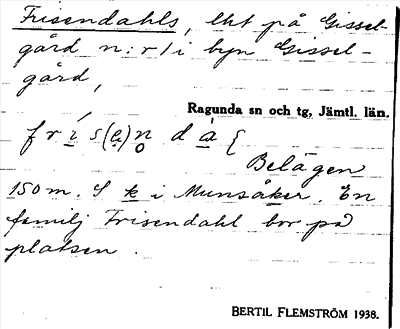 Frisendahls, lht på Gissel-
gård n:r 1 i byn Gissel-
gård,
Ragunda sn och tg, Jämtl. län.
frís(e)n da{
Belägen
150 m. S k i Munsåker. En
familj Frisendahl bor på
platsen.
BERTIL FLEMSTRÖM 1938.